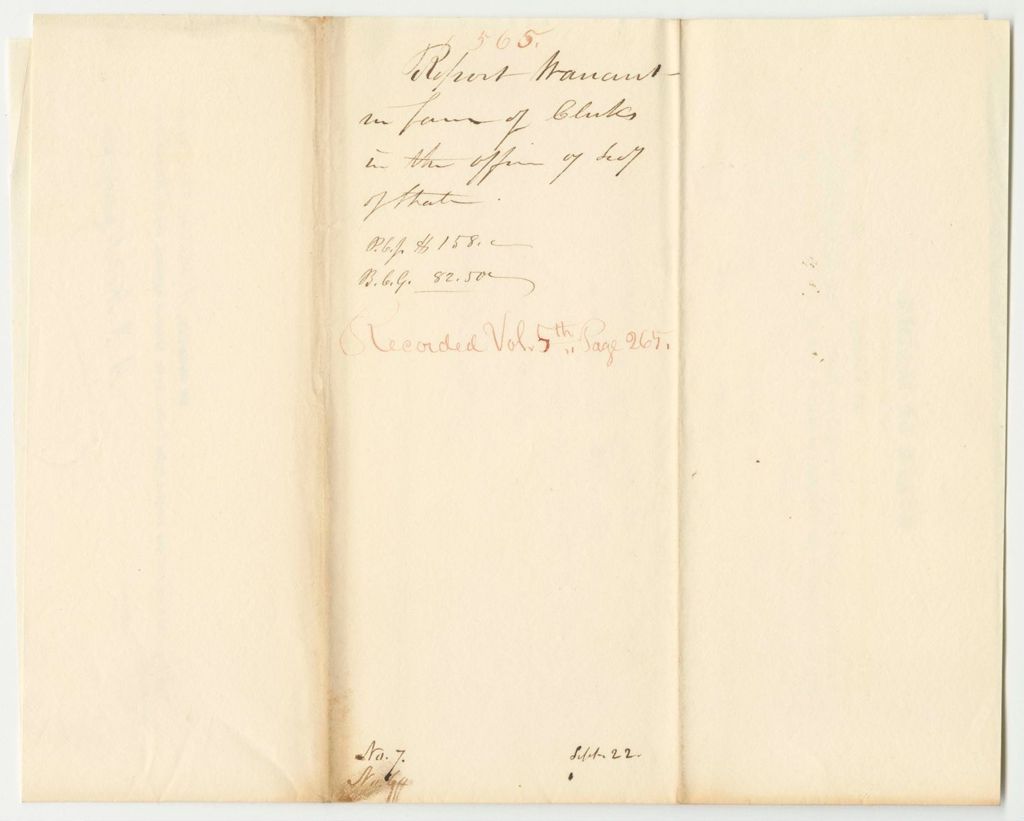 565.
Report Warrant
in favor of Clerks
in the office of Secy
of State.
P.C.J. $158.
B.C.G. 82.50
Recorded Vol. 5th, Page 265.
No. 7. Sept. 22.